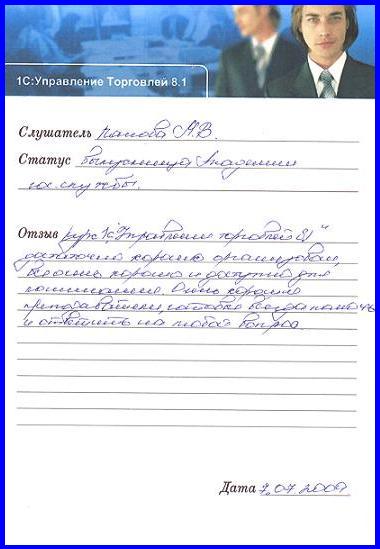 1С:Управление Торговлей 8.1
Слушатель Панова А.В.
Статус Выпускница Академии
гос.службы.
Отзыв Курс 1С "Управление торговлей 8.1"
достаточно хорошо организован,
Все очень хорошо и доступно для
понимания. Очень хорошие
преподаватели, готовые всегда помочь
и ответить на любой вопрос.
Дата 7.07.2009